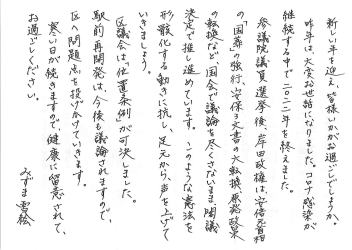 新しい年を迎え、皆様いかがお過ごしでしょうか。
昨年は、大変お世話になりました。コロナ感染が
継続する中で二〇二二年を終えました。
参議院議員選挙後、岸田政権は、安倍元首相
の「国葬」強行、安保3文書の大転換、原発政策
の転換など、国会で議論を尽くさないまま、閣議
決定で推し進めています。このような憲法を
形骸化する動きに抗し、足元から、声を上げて
いきましょう。
区議会は、「位置条例」が可決しました。
駅前再開発は、今後も議論されますので、
区へ問題点を投げかけていきます。
寒い日が続きますので、健康に留意されて、
お過ごしください。
みずま雪絵